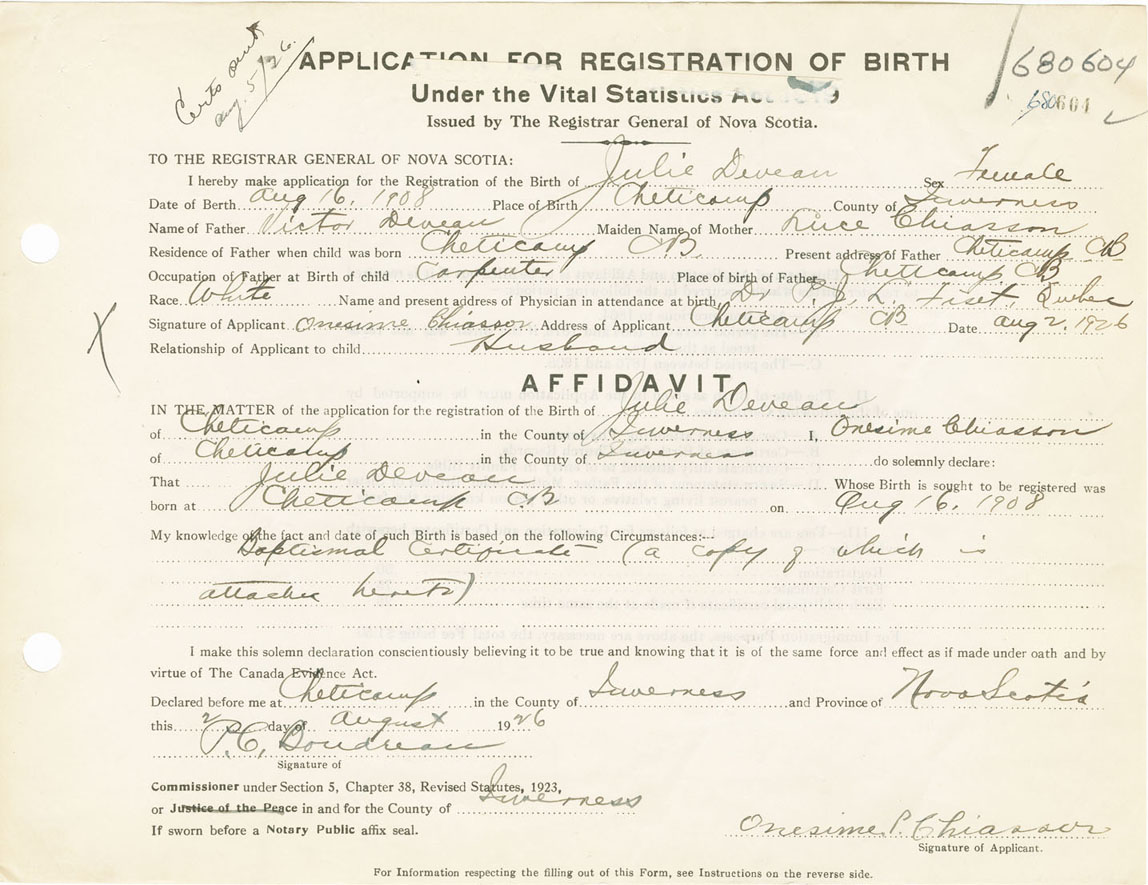 Certs sent
Aug. 5/26.
680604
680604
APPLICATION FOR REGISTRATION OF BIRTH
Under the Vital Statistics Act 1919
Issued by The Registrar General of Nova Scotia.
TO THE REGISTRAR GENERAL OF NOVA SCOTIA:
I hereby make application for the Registration of the Birth of Julie Deveau Sex Female
Date of Berth Aug 16, 1908 Place of Birth Cheticamp County of Inverness
Name of Father Victor Deveau Maiden Name of Mother Luce Chiasson
Residence of Father when child was born Cheticamp CB. Present address of Father Cheticamp CB
Occupation of Father at Birth of child Carpenter Place of birth of Father Cheticamp CB
Race White Name and present address of Physician in attendance at birth Dr P. J. L. Fiset, Quebec
Signature of Applicant Onesime Chiasson Address of Applicant Cheticamp CB Date Aug 2, 1926
Relationship of Applicant to child Husband
AFFIDAVIT
IN THE MATTER of the application for the registration of the Birth of Julie Deveau
of Cheticamp in the County of Inverness I, Onesime Chiasson
of Cheticamp in the County of Inverness do solemnly declare:
That Julie Deveau Whose Birth is sought to be registered was
born at Cheticamp CB on Aug 16, 1908
My knowledge of the fact and date of such Birth is based on the following Circumstances:--
Baptismal Certificate (a copy of which is
attached hereto)
I make this solemn declaration conscientiously believing it to be true and knowing that it is of the same force and effect as if made under oath and by
virtue of The Canada Evidence Act.
Declared before me at Cheticamp in the County of Inverness and Province of Nova Scotia
this 2 day of August 1926
P.C. Boudreau
Signature of
Commissioner under Section 5, Chapter 38, Revised Statutes, 1923,
or Justice of the Peace in and for the County of Inverness
If sworn before a Notary Public affix seal.
Onesime P. Chiasson
Signature of Applicant.
For Information respecting the filling out of this Form, see Instructions on the reverse side.